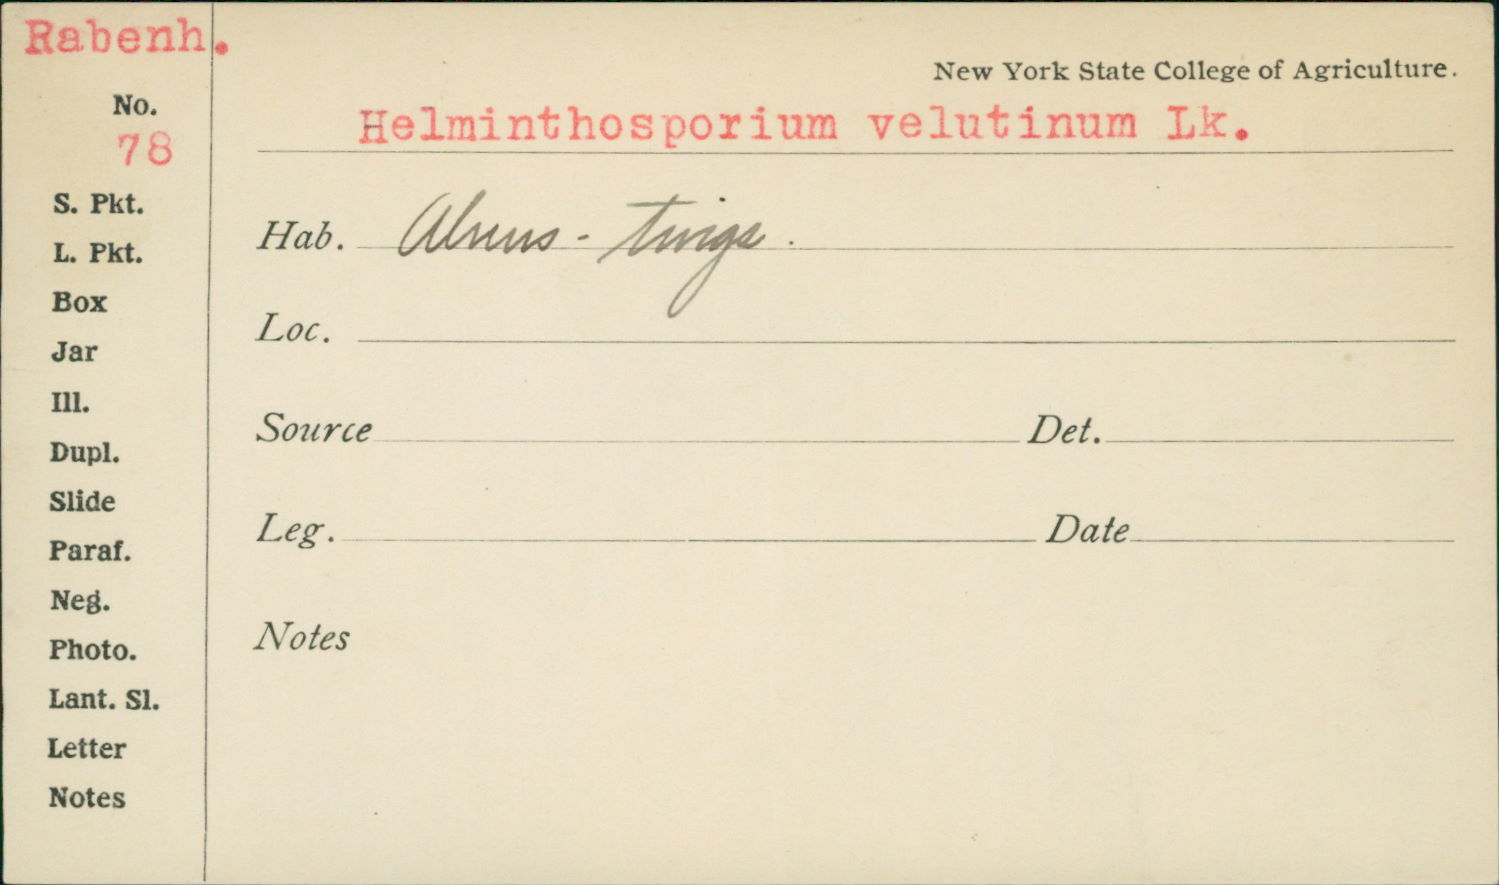 Rabenh.
New York State College of Agriculture.
No.
78
Helminthosporium velutinum Lk.
S. Pkt.
L. Pkt.
Box
Jar
Ill.
Dupl.
Slide
Paraf.
Neg.
Photo.
Lant. Sl.
Letter
Notes
Hab. Alnus - twigs.
Loc.
Source Det.
Leg. Date
Notes